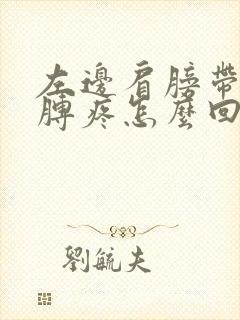 左邊肩膀帶
膊疼怎麼回
劉毓夫